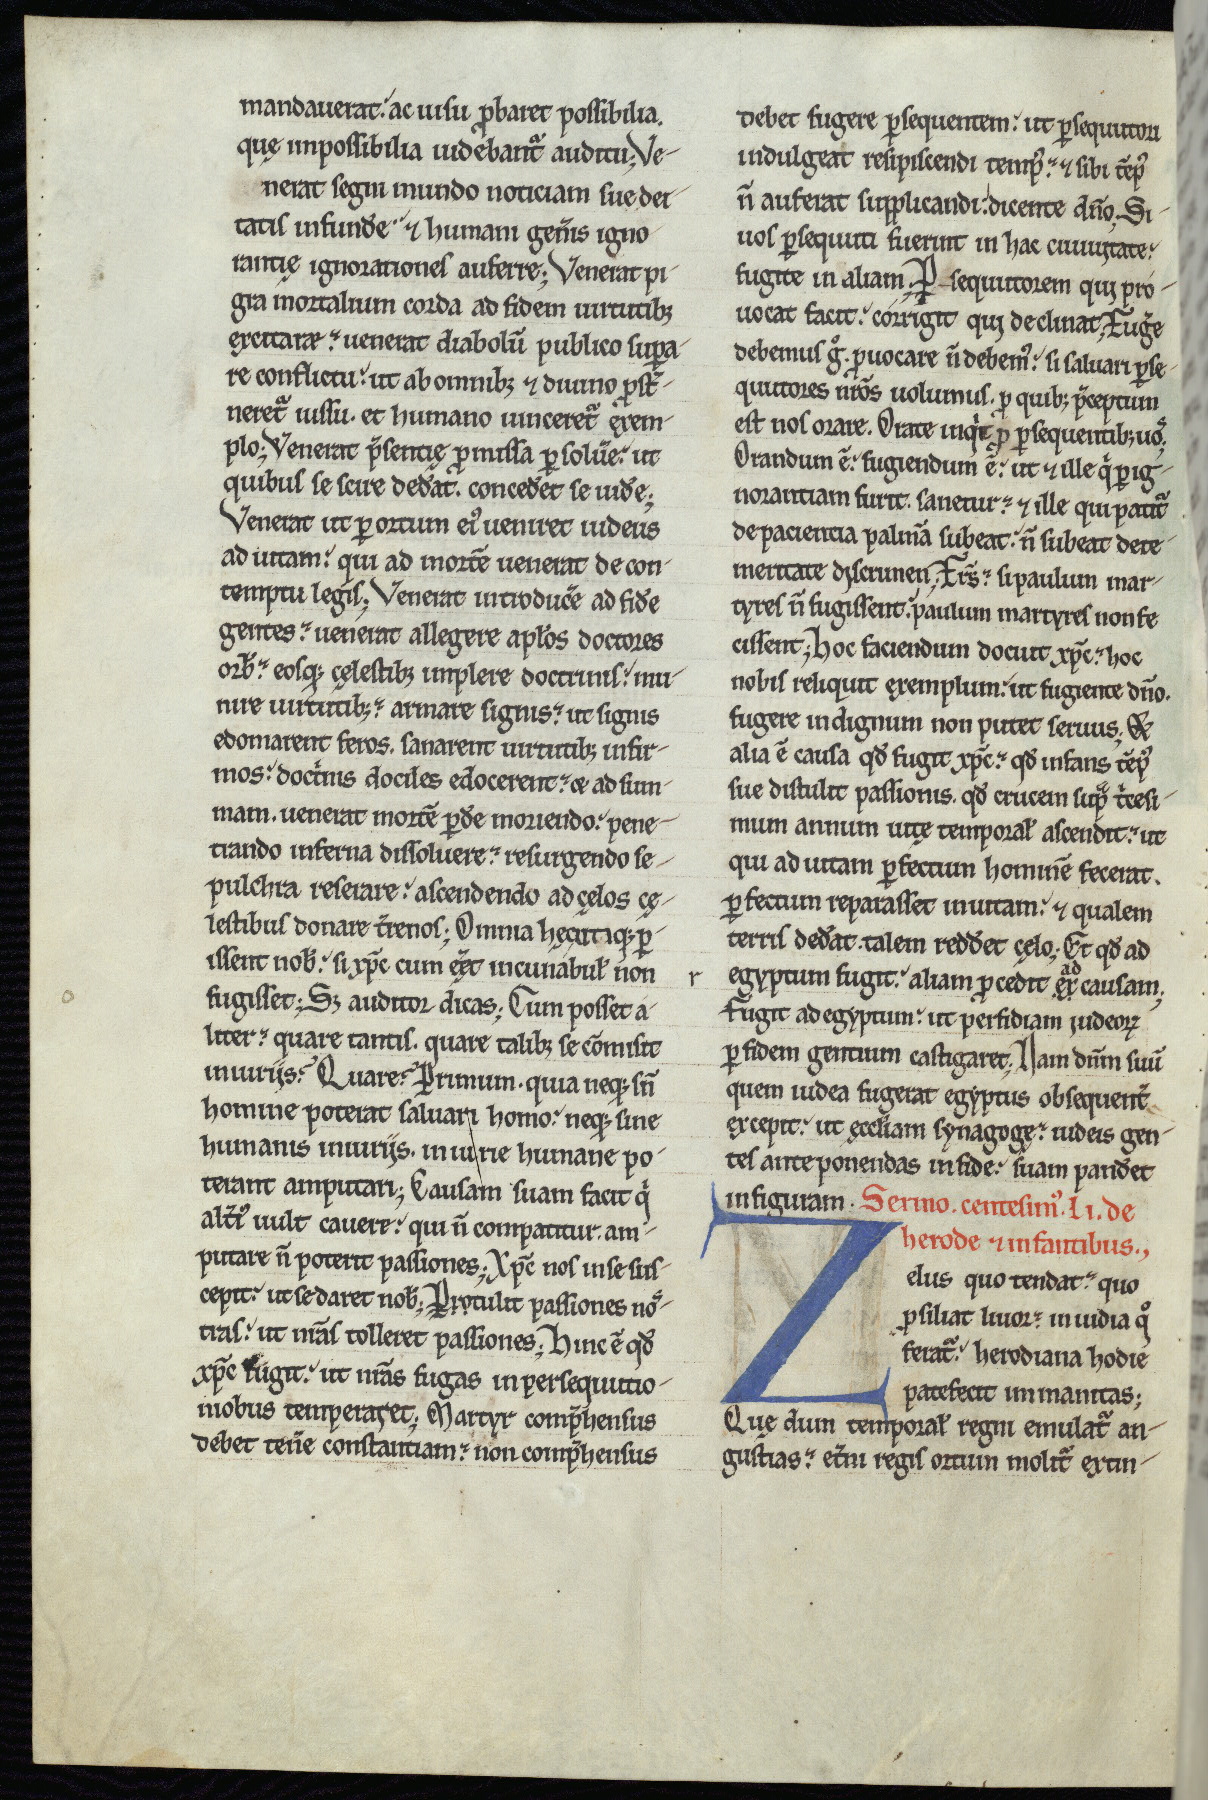 mandauerat: ac uisu ꝓbaret possibilia.
quę impossibilia uidebant᷑ auditu; Ve-
nerat segni mundo noticiam sue dei-
tatis infunde᷑ ⁊ humani gen̄is igno-
rantię ignorationes auferre; Venerat pi-
gra mortalium corda ad fidem uirtutibꝫ
excitare: uenerat diabolū publico supa-
re conflictu: ut ab omnibꝫ ⁊ diuino ꝓst̄-
neret᷑ iussu. et humano uinceret᷑ exem-
plo; Venerat p̄sentię ꝓmissa ꝑsolu̅e: ut
quibus se scire ded̄at. conced̄et se uid̄e;
Venerat ut ꝑ ortum eiꝰ ueniret iudeus
ad uitam: qui ad mortē uenerat de con-
temptu legis; Venerat introduc̄e ad fidē
gentes: uenerat allegere apłos doctores
orb̄: eosqꝫ cęlestibꝫ implere doctrinis: mu-
nire uirtutibꝫ: armare signis: ut signis
edomarent feros. sanarent uirtutibꝫ infir-
mos: doct̍nis dociles edocerent: & ad sum-
mam. uenerat mortē ꝑd̄e moriendo: pene-
trando inferna dissoluere: resurgendo se-
pulchra reserare: ascendendo ad cęlos cę-
lestibus donare t̄renos; Omnia hęc utiqꝫ ꝑ-
issent nob̄: si xp̄c cum eēt incunabul̄ non
fugisset; Sꝫ auditor dicas; Cum posset a-
liter: quare tantis. quare talibꝫ se cōmisit
iniurijs? Quare? Primum. quia neqꝫ sn̄
homine poterat saluari homo: neqꝫ sine
humanis iniurijs. iniurie humane po-
terant amputari; Causam suam facit q̍
alt̄iꝰ uult cauere: qui n̄ compatitur. am-
putare n̄ poterit passiones; Xp̄c nos in se sus-
cepit: ut se daret nob̄; Protulit passiones nō-
tras: ut n̄ras tolleret passiones; Hinc ē qđ
xp̄c fugit: ut n̄ras fugas in persequutio-
nibus temperaret; Martyr comp̄hensus
debet ten̄e constantiam: non comp̄hensus
debet fugere ꝑsequentem: ut ꝑsequutori
indulgeat resipiscendi tempꝰ: ⁊ sibi tēpꝰ
n̄ auferat supplicandi: dicente dn̄o; Si
uos ꝑsequuti fuerint in hac ciuitate:
fugite in aliam. P sequutorem qui pro-
uocat facit: corrigit qui declinat; Fug̅e
debemus g̊. ꝓuocare n̄ debemꝰ: si saluari ꝑse-
quutores n̄ros uolumus. ꝓ quibꝫ p̄ceptum
est nos orare. Orate inq̍t ꝓ ꝑsequentibꝫ uoꝰ;
Orandum ē: fugiendum ē: ut ⁊ ille q̍ ꝑ ig-
norantiam furit. sanetur: ⁊ ille qui patit᷑
de paciencia palmā subeat: n̄ subeat dete-
meritate discrimen; Frs̄: si paulum mar-
tyres n̄ fugissent: paulum martyres non fe-
cissent; Hoc faciendum docuit xp̄c: hoc
nobis reliquit exemplum: ut fugiente dn̄o.
fugere indignum non putet seruus; &
alia ē causa qđ fugit xp̄c: qđ infans tēpꝰ
sue distulit passionis. qđ crucem sup̄ t̍cesi-
mum annum uitę temporal̄ ascendit: ut
qui ad uitam ꝑfectum hominē fecerat.
ꝑfectum reparasset in uitam: ⁊ qualem
terris ded̄at. talem redd̄et cęlo; Et qđ ad
r egyptum fugit: aliam ꝓcedit ex ad causam;
Fugit ad egyptum: ut perfidiam iudeoꝝ
ꝑ fidem gentium castigaret; Nam dn̄m suū
quem iudea fugerat egyptus obsequent̄
excepit: ut ęccłiam synagogę: iudeis gen-
tes anteponendas in fide: suam pand̄et
in figuram. Sermo. centesimꝰ. Li. de
herode ⁊ infantibus.,
Zelus quo tendat: quo
ꝓsiliat liuor: inuidia q̊
ferat᷑: herodiana hodie
patefecit inmanitas;
Quę dum temporal̄ regni emulat᷑ an-
gustias: et̄ni regis ortum molit᷑ extin-